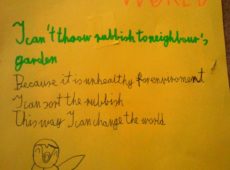 WORLD
I can't throw rubbish to neighbour's
garden
Because it is unhealthy for enviroment
I can sort the rubbish
This way I can change the world